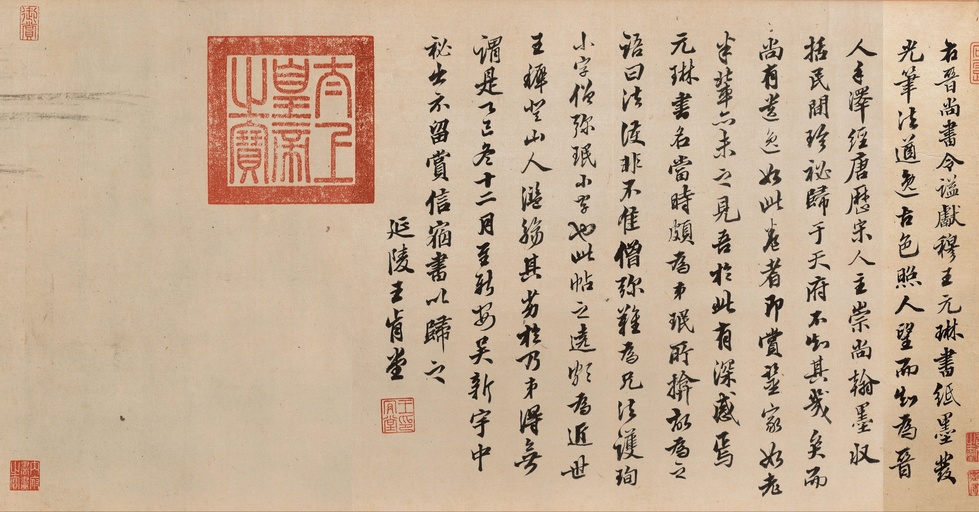 右晉尚書令謚獻穆王元琳書紙墨發
光筆法遒逸古色照人望而知為晉
人手澤經唐歷宋人主崇尚翰墨収
括民間珍祕歸于天府不知其幾矣而
尚有遺逸如此卷者即賞鑒家如老
米輩亦未之見吾於此有深感焉
元琳書名當時頗為弟珉所揜故為之
語曰法護非不佳僧彌難為兄法護珣
小字僧彌珉小字也此帖之遶頗為近世
王穉登山人濫觴其劣於乃弟得無
謂是丁巳冬十二月至新安吳新宇中
祕出示留賞信宿書以歸之
延陵王肯堂
太上
皇帝
之寶
御賞